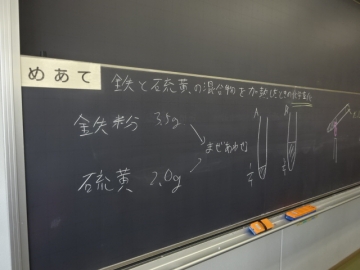 めあて
鉄と硫黄の混合物を加熱したときの
鉄粉 3.5g
まぜあわせ
硫黄 2.0g
A